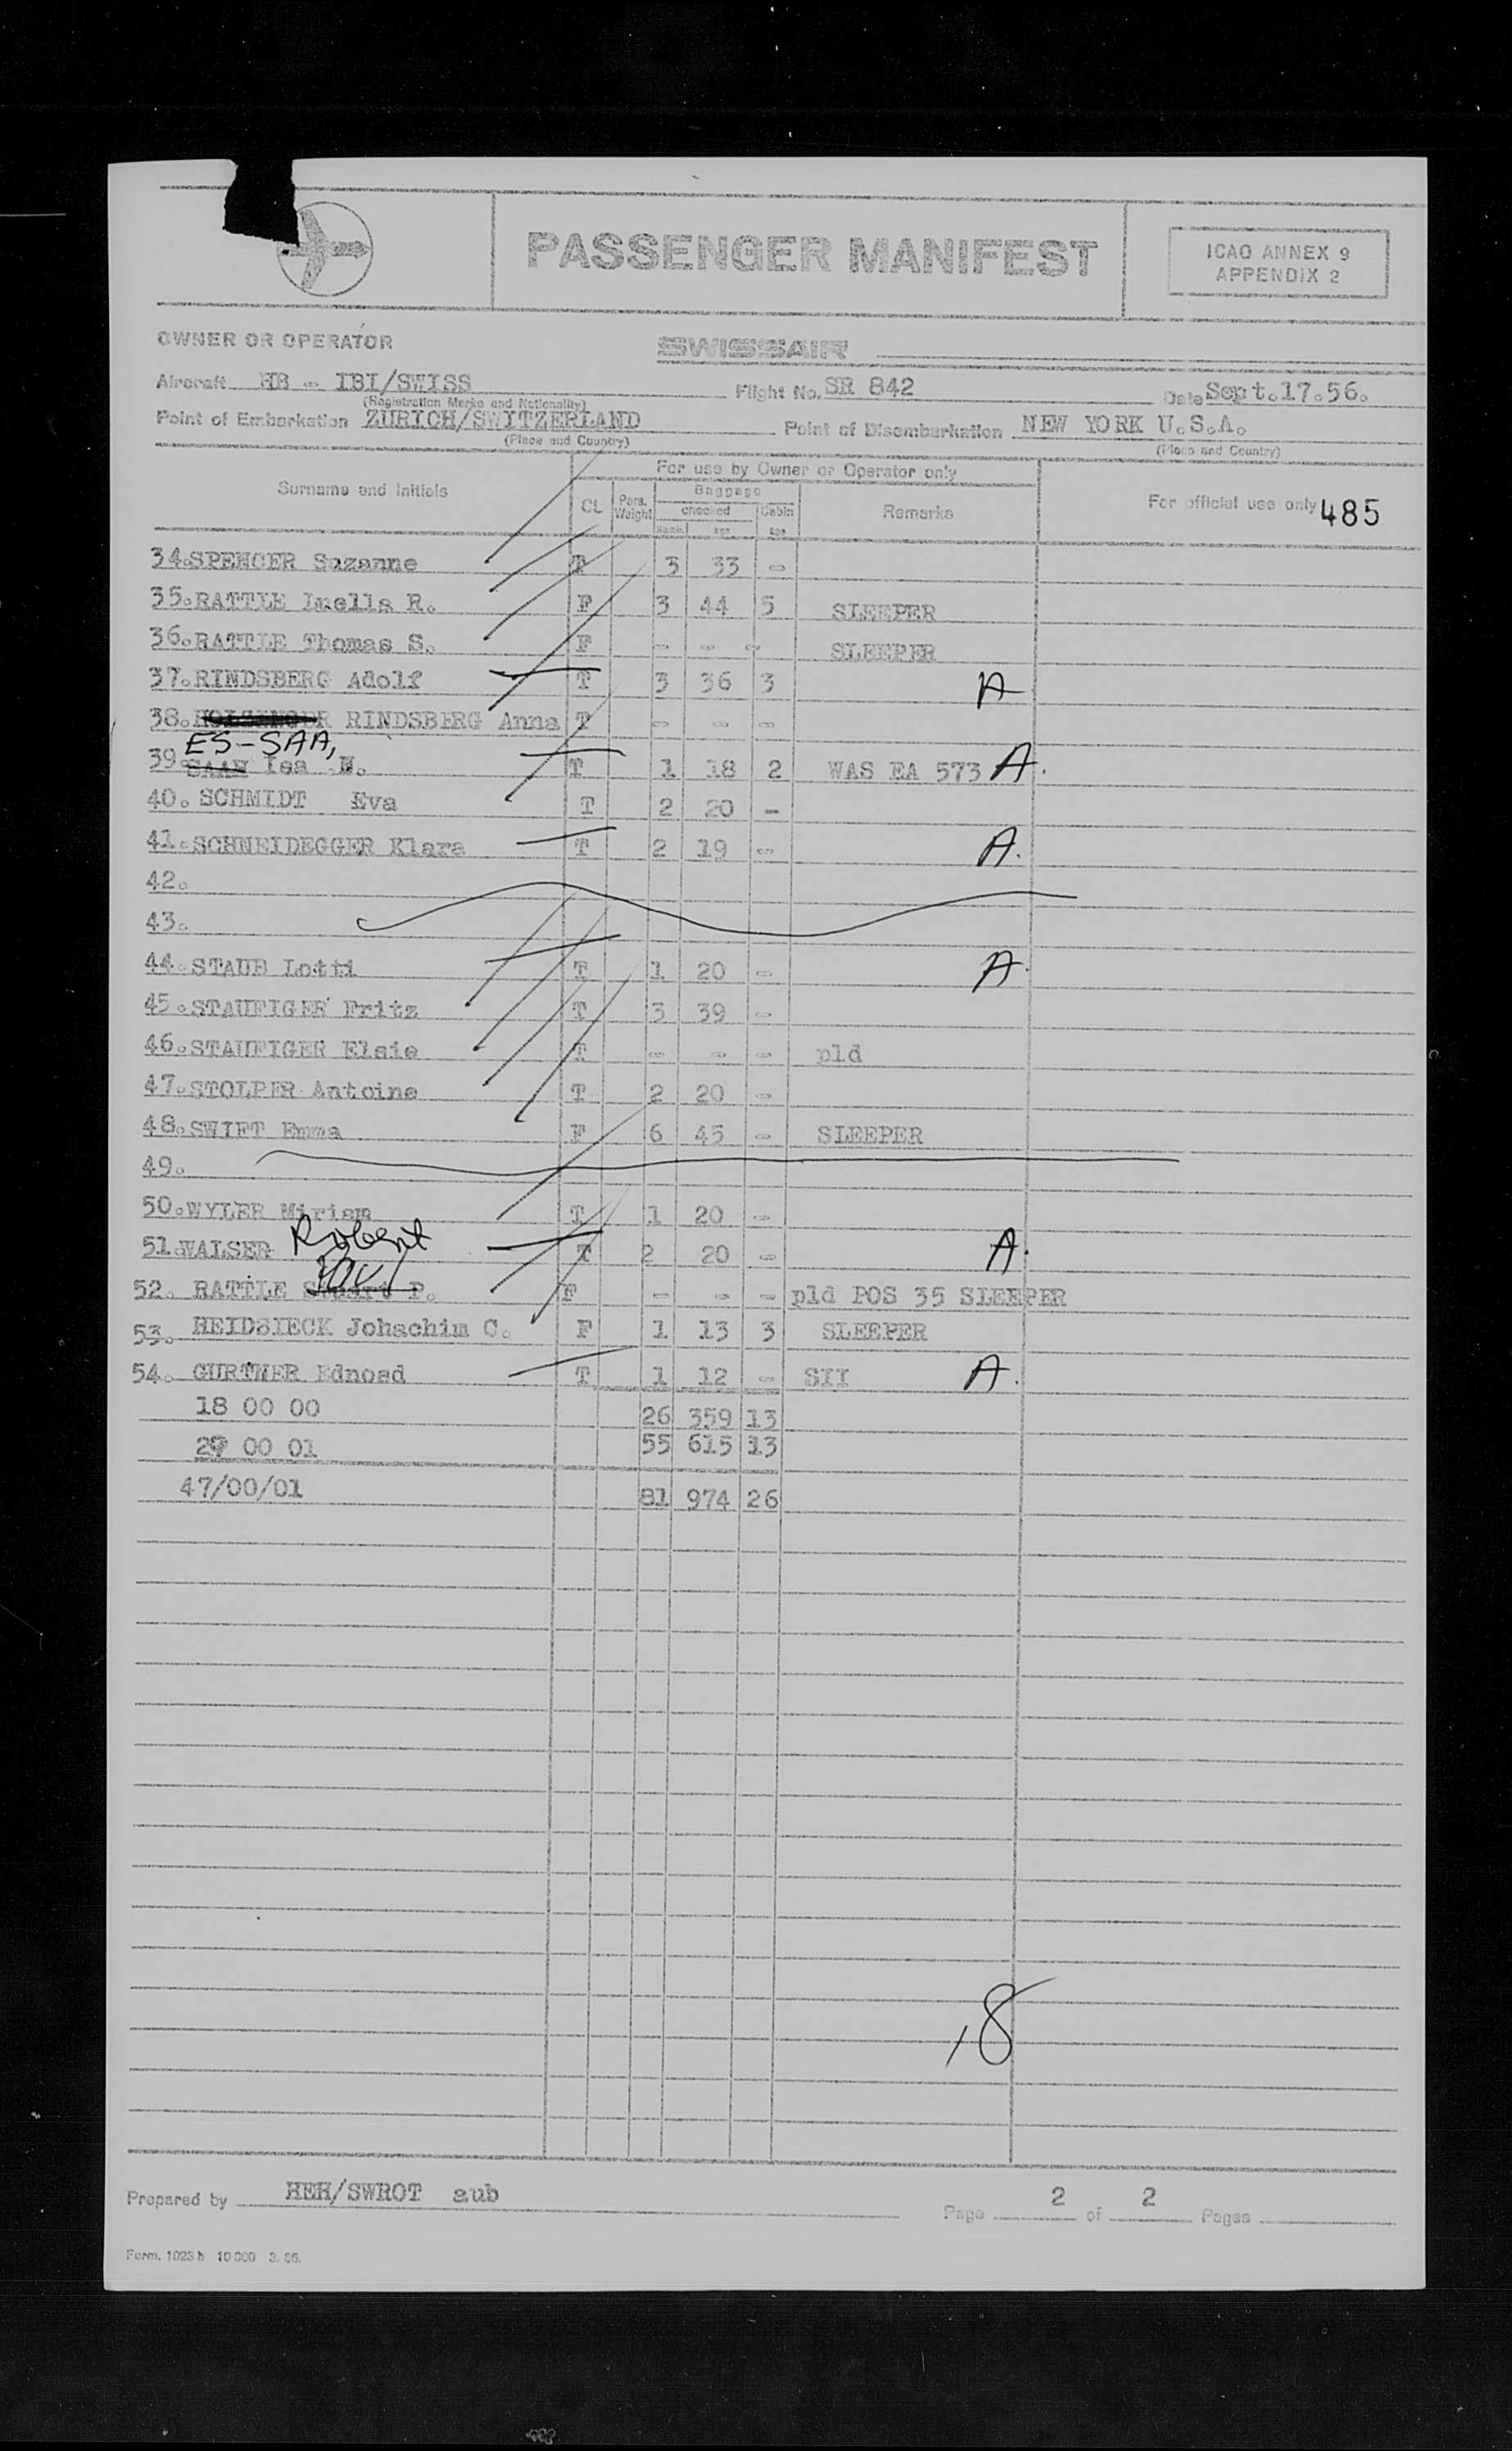 PASSENGER MANIFEST
ICAO ANNEX 9
APPENDIX 2
OWNER OR OPERATOR SWISSAIR
Aircraft HB - IBI/SWISS Flight No. SR 842 Date Sept.17.56.
(Registration Marks and Nationality)
Point of Embarkation ZURICH/SWITZERLAND Point of Disembarkation NEW YORK U.S.A.
(Place and Country) (Place and Country)
For use by Owner or Operator only
Surname and Initials CL Pers. Weight Baggage checked Cabin Remarks For official use only 485
Numb. kgs kgs
34.SPENCER Suzanne T 3 33 -
35.RATTLE Luella R. F 3 44 5 SLEEPER
36.RATTLE Thomas S. F - - - SLEEPER
37.RINDSBERG Adolf T 3 36 3 A
38. RINDSBERG Anna T - - -
ES-SAA,
39.SAAN Isa N. T 1 18 2 WAS EA 573 A.
40. SCHMIDT Eva T 2 20 -
41.SCHNEIDEGGER Klara T 2 19 - A.
42.
43.
44.STAUB Lotti T 1 20 - A.
45.STAUFIGER Fritz T 3 39 -
46.STAUFIGER Elsie T - - - pld
47.STOLPER Antoine T 2 20 -
48.SWIFT Emma F 6 45 - SLEEPER
49.
50.WYLER Miriam T 1 20 -
51.WALSER Robert T 2 20 - A.
52. RATTLE Stuart P. F - - - pld POS 35 SLEEPER
53. HEIDSIECK Johachim C. F 1 13 3 SLEEPER
54. GURTNER Ednoad T 1 12 - SII A.
18 00 00 26 359 13
29 00 01 55 615 13
47/00/01 81 974 26
18
Prepared by HEH/SWROT aub Page 2 of 2 Pages
Form. 1023 b 10 000 3. 56.